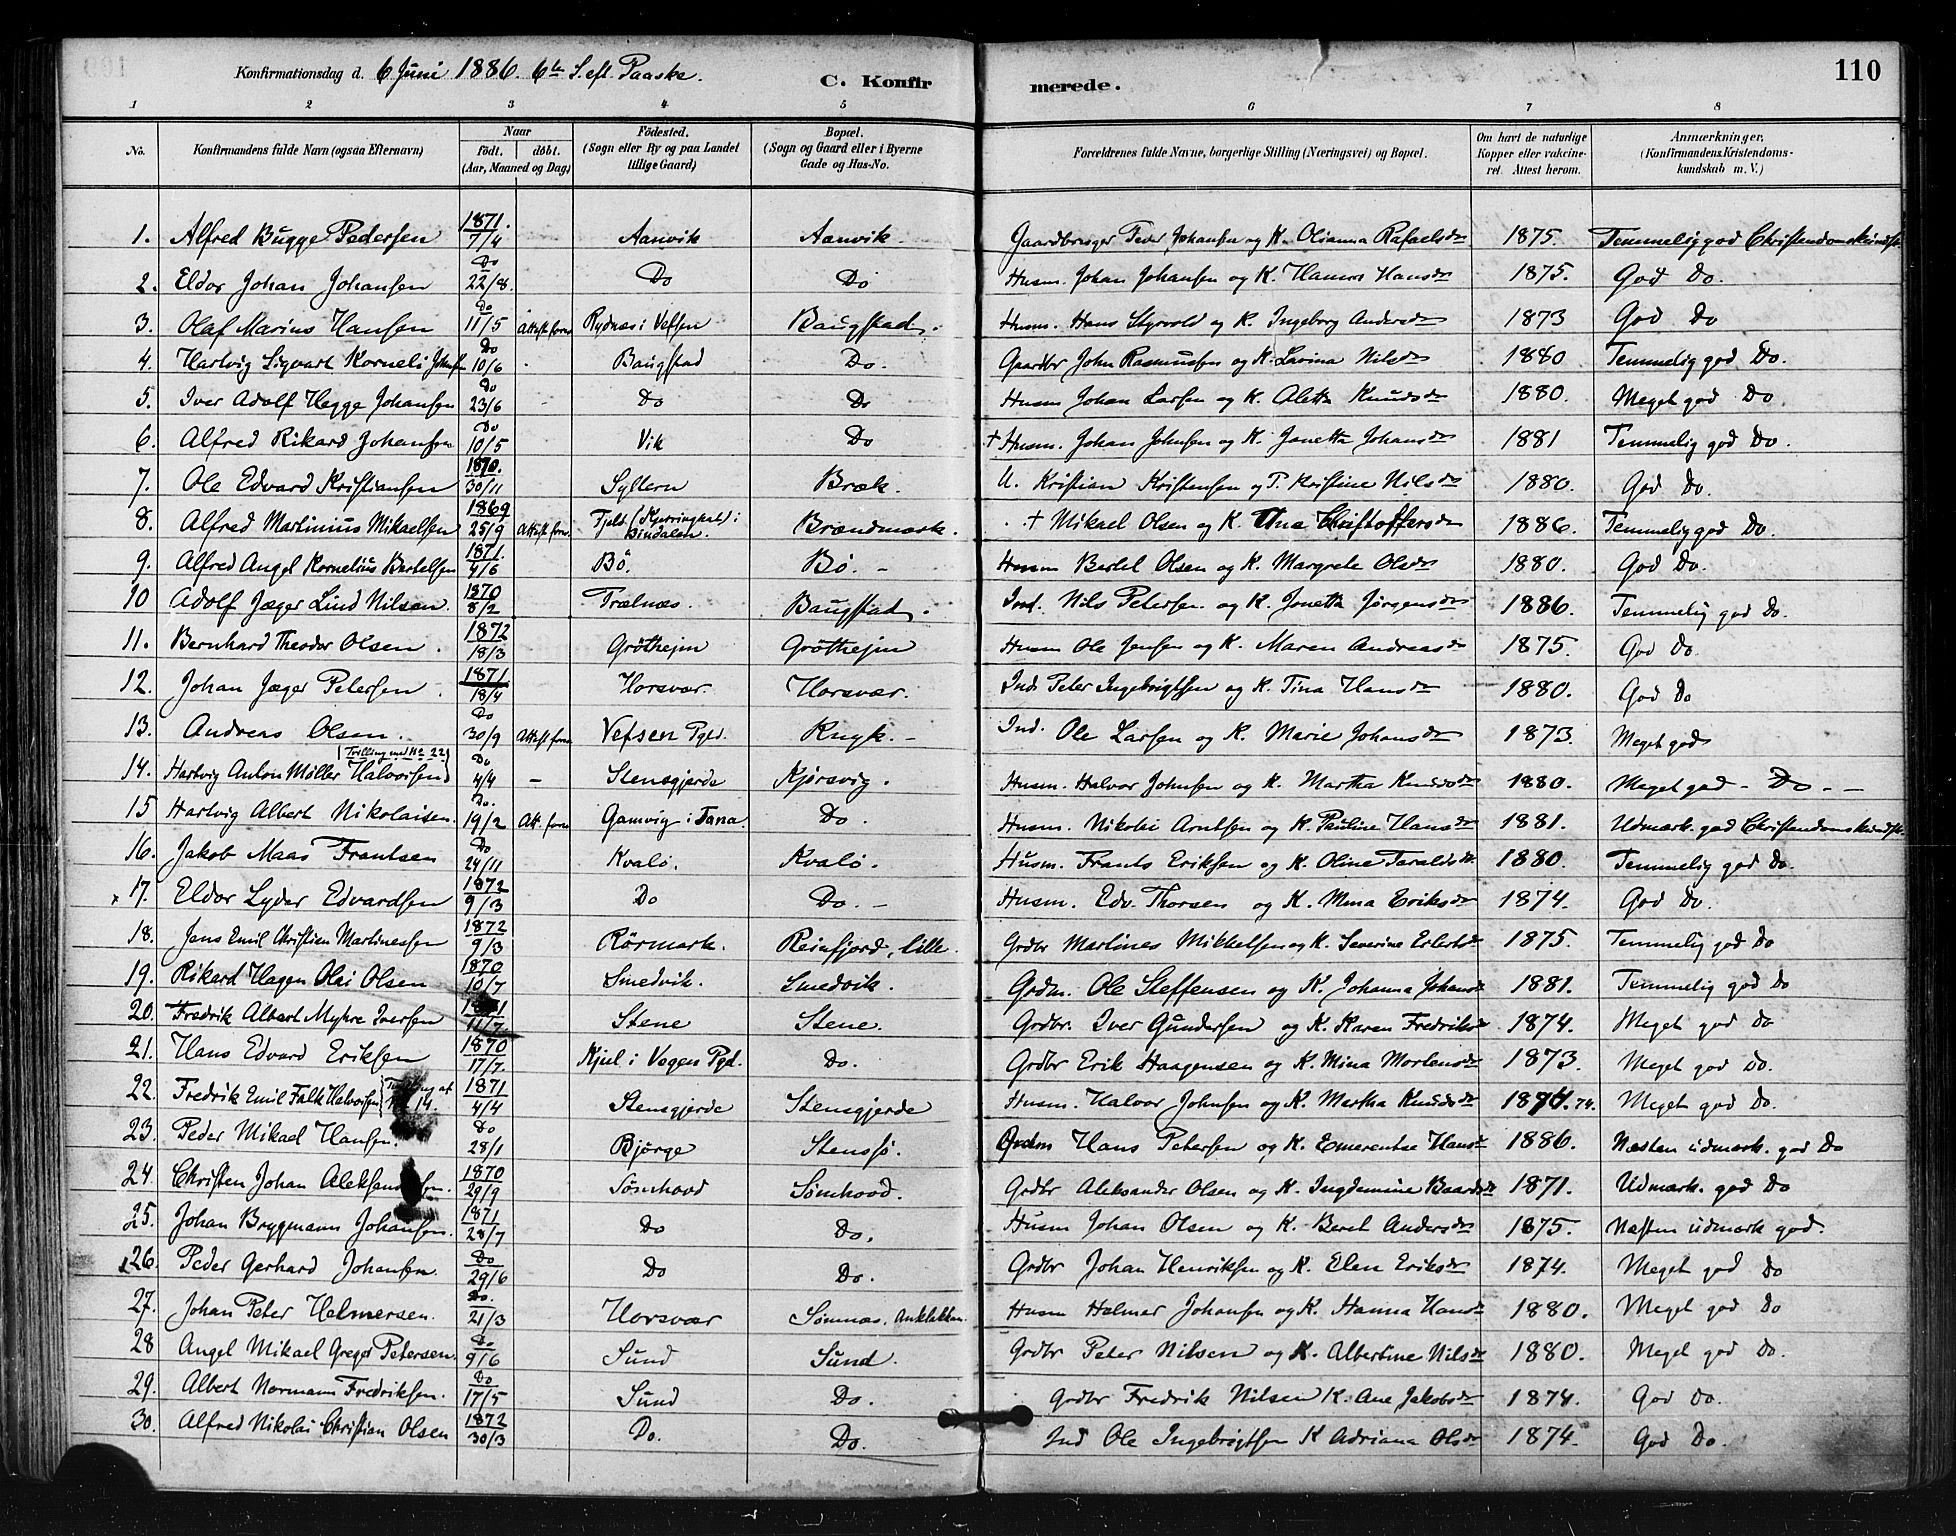 Konfirmationsdag d. 6 Juni 1886. 6te S. eft. Paaske.
C. Konfirmerede.
110
1 2 3 4 5 6 7 8
No. Konfirmandens fulde Navn (ogsaa Efternavn) Naar født. døbt. (Aar, Maaned og Dag) Fødested. (Sogn eller By og paa Landet tillige Gaard) Bopæl. (Sogn og Gaard eller i Byerne Gade og Hus-No. Forældrenes fulde Navne, borgerlige Stilling (Næringsvei) og Bopæl. Om havt de naturlige Kopper eller vakcineret. Attest herom. Anmærkninger. (Konfirmandens Kristendomskundskab m. V.)
1. Alfred Bugge Pedersen 1871. 7/4 Aanvik Aanvik. Gaardbruger Peder Johansen og K. Olianna Rafaelsdr 1875. Temmelig god Christendomskundsk.
2. Eldor Johan Johansen Do 22/8. Do Do Husm. Johan Johansen og K. Hansdr 1875. God Do.
3. Olaf Marius Hansen Do 11/5 Attest forev. Rydnæs i Vefsen Baugstad. Husm. Hans Styrvold og K. Ingeborg Andersdr 1873 God Do
4. Hartvig Sigvart Korneli Johnsen Do 10/6 Baugstad Do. Gaardbr John Rasmussen og K. Lovina Nilsdr 1880 Temmelig god Do.
5. Iver Adolf Hegge Johansen Do 23/6 - Do Do Husm Johan Larsen og K. Aletta Knudsdr 1880. Meget god Do.
6. Alfred Rikard Johansen Do 10/5 Vik Do + Husm. Johan Johnsen og K. Janetta Johansdr 1881 Temmelig god Do.
7. Ole Edvard Kristiansen 1870. 30/11 Syltern Bræk. U. Kristian Kristensen og P. Kristine Nilsdr 1880. God Do.
8. Alfred Martinius Mikaelsen 1869 25/9 Attest forev. Fjeld (Kjerringkal) i Bindalen. Brændmark. + Mikael Olsen og K. Una Christoffersdr 1886. Temmelig god Do.
9. Alfred Angel Kornelius Bertelsen 1871. 4/6 Bö. Bö. - Husm Bertel Olsen og K. Margrete Olsdr 1880. God Do.
10 Adolf Jæger Lind Nilsen. 1870 8/2 Trælnæs. Baugstad. Ind. Nils Petersen og K. Jonetta Jørgensdr 1886. Temmelig god Do.
11. Bernhard Theodor Olsen. 1872 18/3 Gröthejm Gröthejm Husm Ole Jensen og K. Maren Andreasdr 1875. God Do.
12. Johan Jæger Petersen. 1871 18/4 Horsvær. Horsvær. Ind. Peter Ingebrigtsen og K. Tina Hansdr 1880. God Do
13. Andreas Olsen. Do 30/9 Attest forev. Vefsen Pgld. Knyk. - Ind. Ole Larsen og K. Marie Johansdr 1873. Meget god
14. Hartvig Anton Møller Halvorsen (Trilling med No 22) Do 4/4 - Stensgjerde Kjørsvig. Husm. Halvor Johnsen og K. Martha Knudsdr 1880. Meget god - Do. -
15 Hartvig Albert Nikolaisen. Do. 19/2 Att. forev Gamvig i Tana. Do. Husm. Nikolai Arntsen og K. Pauline Hansdr 1881. Udmærk. god Christendomskundsk.
16. Jakob Maas Frantsen Do 24/11 Kvalö. Kvalö. Husm. Frants Eriksen og K. Oline Taraldsdr. 1880. Temmelig god Do.
x 17. Eldor Lyder Edvardsen 1872 9/3 Do Do. - Husm. Edv. Thorsen og K. Mina Eriksdr 1874. God Do.
18. Jens Emil Christian Martinessen 1872 9/3 Rörmark. Reinfjord, lille. Grdbr Martines Mikkelsen og K. Severine Erlertsdr 1875. Temmelig god Do
19. Rikard Hagen Olai Olsen 1870 10/7 Smedvik. Smedvik. Grdm. Ole Steffensen og K. Johanna Johansdr 1881. Temmelig god Do
20. Fredrik Albert Myhre Iversen 1871 11/7. Stene Stene. Grdbr. Iver Gundersen og K. Karen Fredriksdr 1874. Meget god Do
21. Hans Edvard Eriksen 1870 17/7. Kjul i Vegen Pgd. Do. Grdbr Erik Haagensen og K. Mina Mortensdr 1873. Meget god Do.
22. Fredrik Emil Falk Halvorsen {Trilling af No 14. 1871 4/4 Stensgjerde Stensgjerde Husm. Halvor Johnsen og K. Martha Knudsdr 1874. 74. Meget god Do.
23. Peder Mikael Hansen. Do 28/1 Bjørge Stensø. Grdm Hans Petersen og K. Emerentse Hansdr 1886. Næsten udmærk. god Do
24. Christen Johan Aleksandersen. 1870 29/9 Sømhovd Sømhovd. Grdbr Aleksander Olsen og K. Ingdemine Baardsdr 1871. Udmærk. god Do
25. Johan Brygmann Johansen. 1871 28/7 Do Do. Husm Johan Olsen og K. Beret Andersdr 1875. Næsten udmærk god.
26. Peder Gerhard Johansen. Do 29/6 Do Do. Grdbr Johan Henriksen og K. Elen Eriksdr 1874. Meget god Do
27. Johan Peter Helmersen. Do. 21/3 Horsvær Sømnæs, Husm Helmer Johansen og K. Hanna Hansdr 1880. Meget god Do
28 Angel Mikael Greger Petersen. Do 9/6 Sund Sund. Grdbr Peter Nilsen og K. Albertine Nilsdr 1880. Meget god Do.
29. Albert Normann Fredriksen. Do 17/5 Sund Do. Grdbr Fredrik Nilsen K. Ane Jakobsdr 1874. God Do.
30. Alfred Nikolai Christian Olsen 1872 30/3 Do. Do. Ind Ole Ingebrigtsen K Adriana Olsdr 1874. God Do.